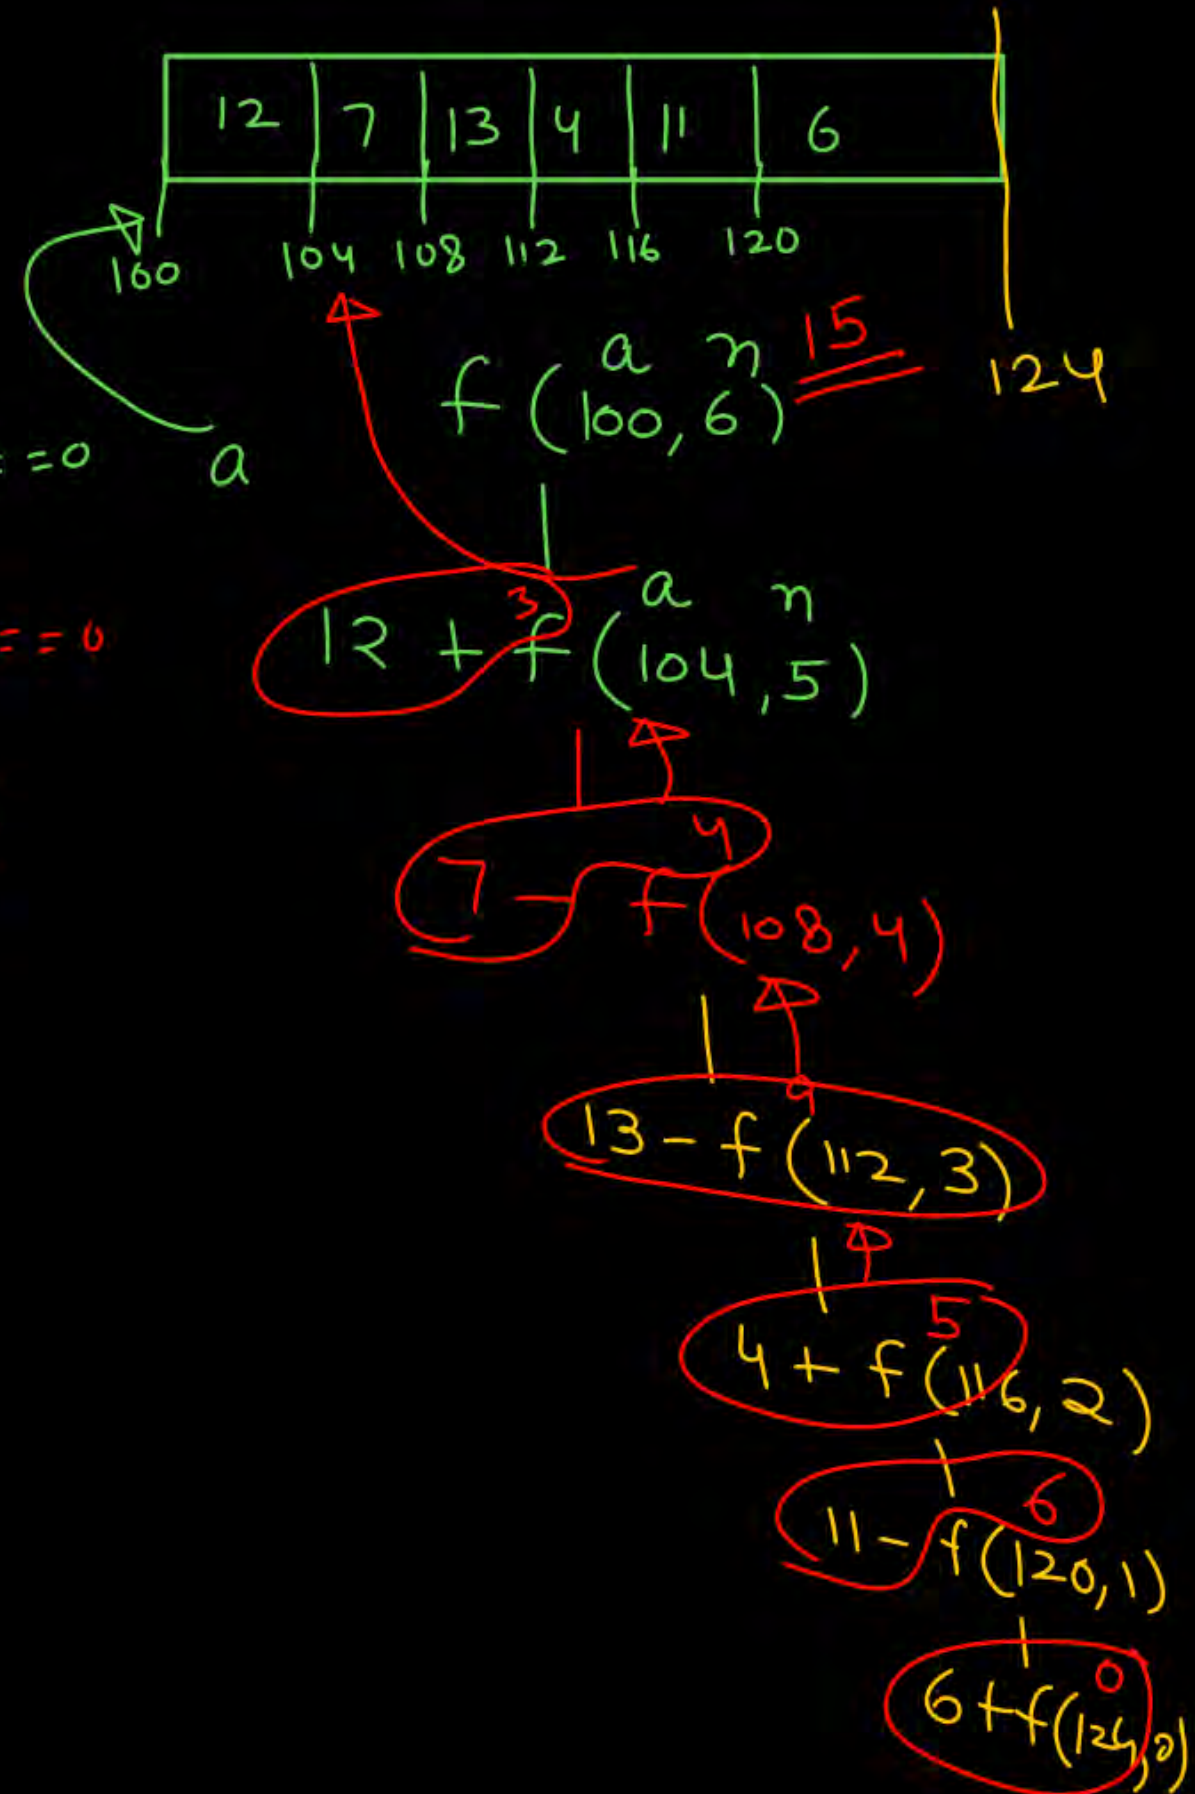 12 7 13 4 11 6
100 104 108 112 116 120
124
a n 15
f(100,6)
==0 a
a n
3
12 + f(104,5)
==0
4
7 - f(108,4)
9
13 - f(112,3)
5
4 + f(116,2)
6
11 - f(120,1)
0
6+f(124,0)